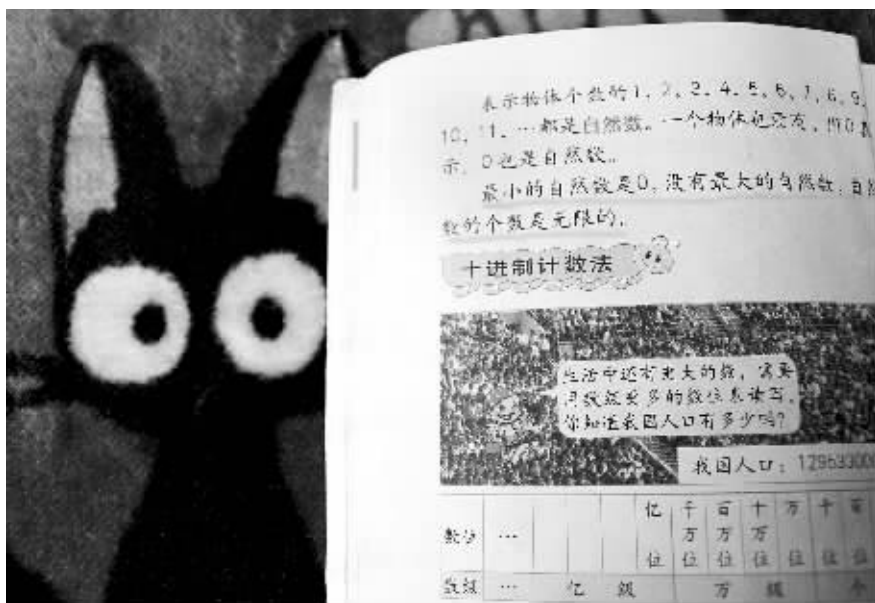 表示物体个数的1、2、3、4、5、6、7、8、9、
10、11、…都是自然数。一个物体也没有,用0表
示。0也是自然数。
最小的自然数是0,没有最大的自然数,自然
数的个数是无限的。
十进制计数法
生活中还有更大的数,需要
用数级更多的数位来读写。
你知道我国人口有多少吗?
我国人口:129533000
数位 … 亿位 千万位 百万位 十万位 万位 千位 百位
数级 … 亿级 万级 个